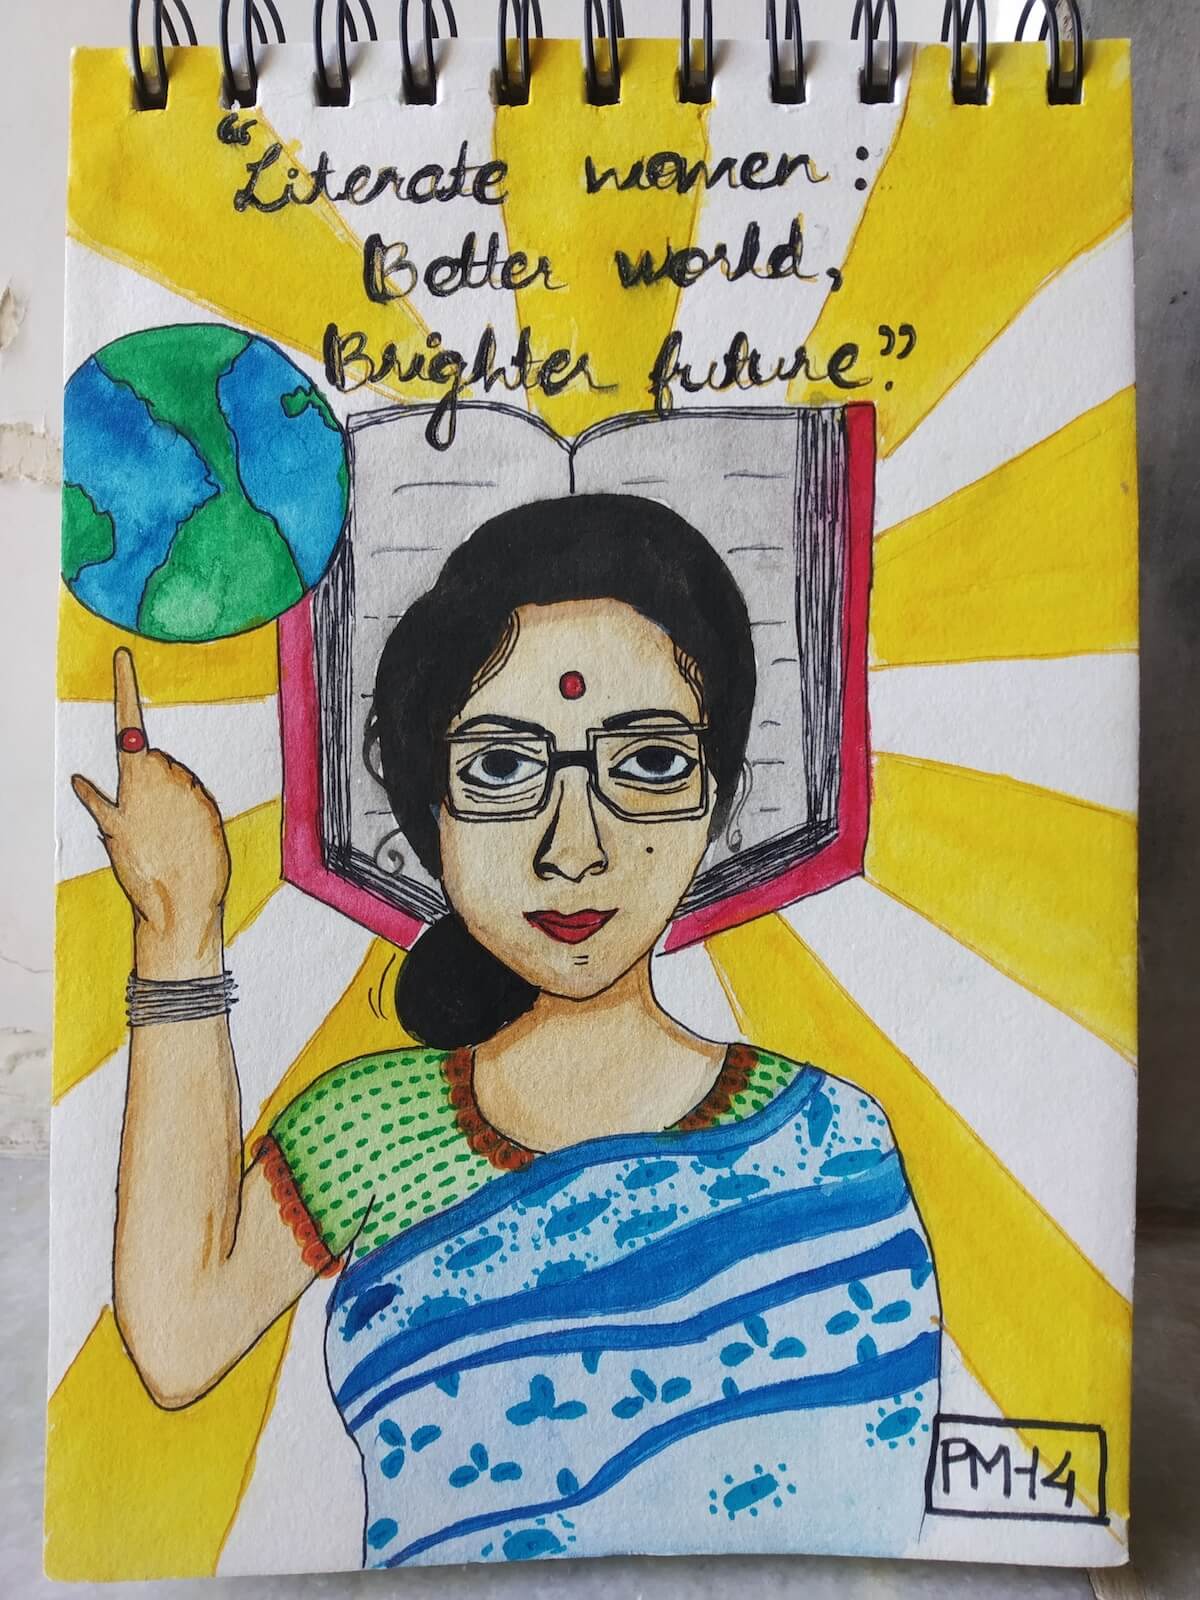 “Literate women :
Better world,
Brighter future.”
PM-14